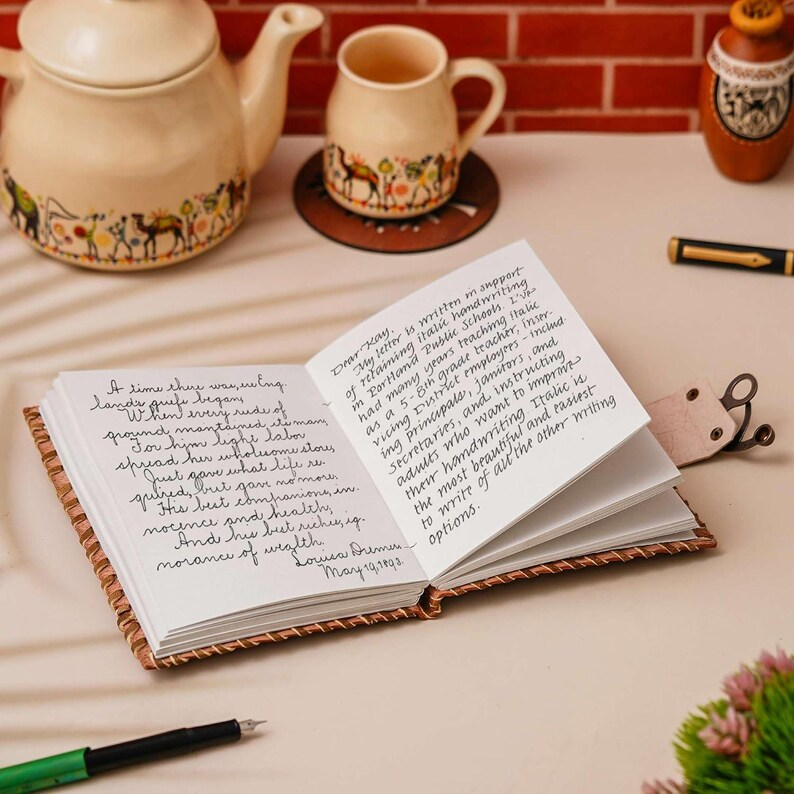 A time there was, ere Eng-
lands griefs began,
When every rude of
ground maintained its man;
For him light labor
spread her wholesome store,
Just gave what life re-
quired, but gave no more.
His best companions, in-
nocence and health;
And his best riches, ig-
norance of wealth.
Louisa
May 19, 1893.
Dear Kay,
My letter is written in support
of retaining italic handwriting
in Portland Public Schools. I've
had many years teaching italic
as a 5-8th grade teacher, inser-
vicing District employees - includ-
ing principals, janitors, and
secretaries, and instructing
adults who want to improve
their handwriting. Italic is
the most beautiful and easiest
to write of all the other writing
options.